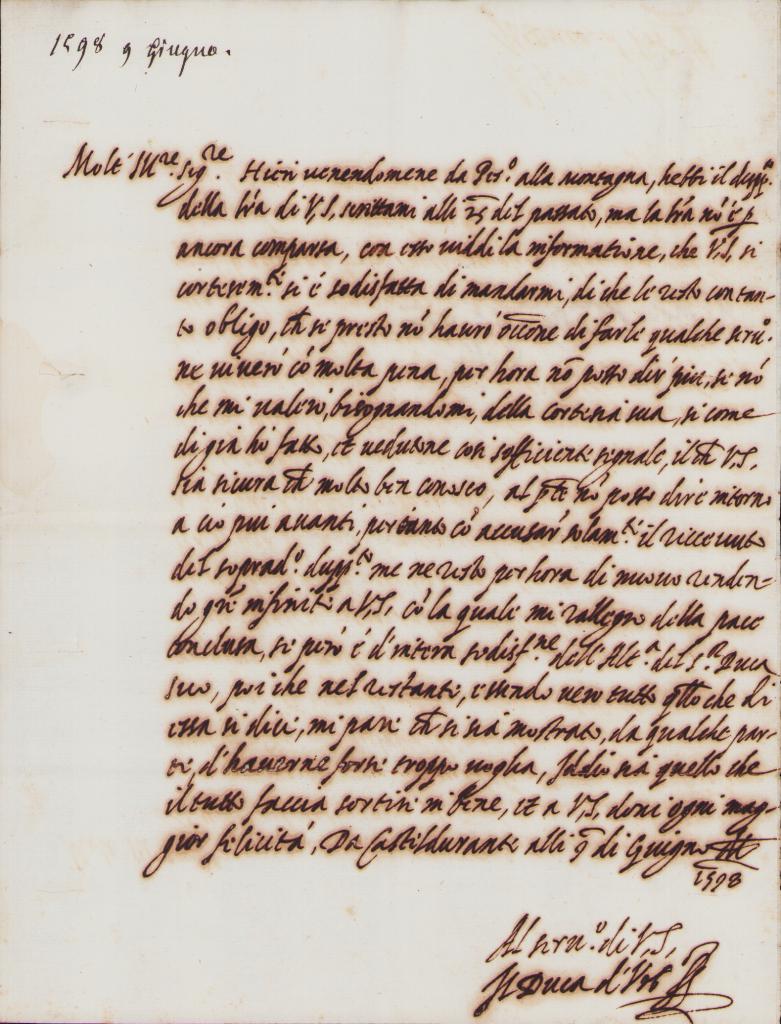 1598 9 Giugno.
Molt' Ill.re Sig.re Hieri venendomene da Pes.o alla montagna, hebbi il dupp.to
della l'ra di V.S. scrittami alli 25 del passato, ma la l'ra nó é p
ancora comparsa, con esso viddi la informatione, che V.S. si
cortesem.te si é sodisfatta di mandarmi, di che le resto con tan-
to obligo, ch se presto nó hauró occ.ne di farle qualche seru.o
ne viveró có molta pena, per hora nó posso dir' piu, se nó
che mi valeró, bisognandomi, della cortesia sua, si come
di giá hó fatto, et vedutone cosi sofficiente segnale, il ch V.S.
sia sicura ch molto ben conosco, al pte nó posso dire intorno
a cio piu avanti, pertanto có accusar' solam.te il riceuuto
del soprad.o dupp.to me ne resto per hora di nuouo renden-
do gre infinite a V.S. có la quale mi rallegro della pace
conclusa, se peró é d'intera sodisf.ne dell'Alt.a del S.r Duca
suo, poi che nel restante, essendo vero tutto qllo che di
essa si dice, mi pare ch si sia mostrato, da qualche par-
te, d'hauerne forse troppo voglia, Iddio sia quello che
il tutto faccia sortire in bene, et a V.S. doni ogni mag-
gior felicitá, Da Casteldurante alli 9 di Giugno
1598
Al seru.o di V.S.
Il Duca d'Urb